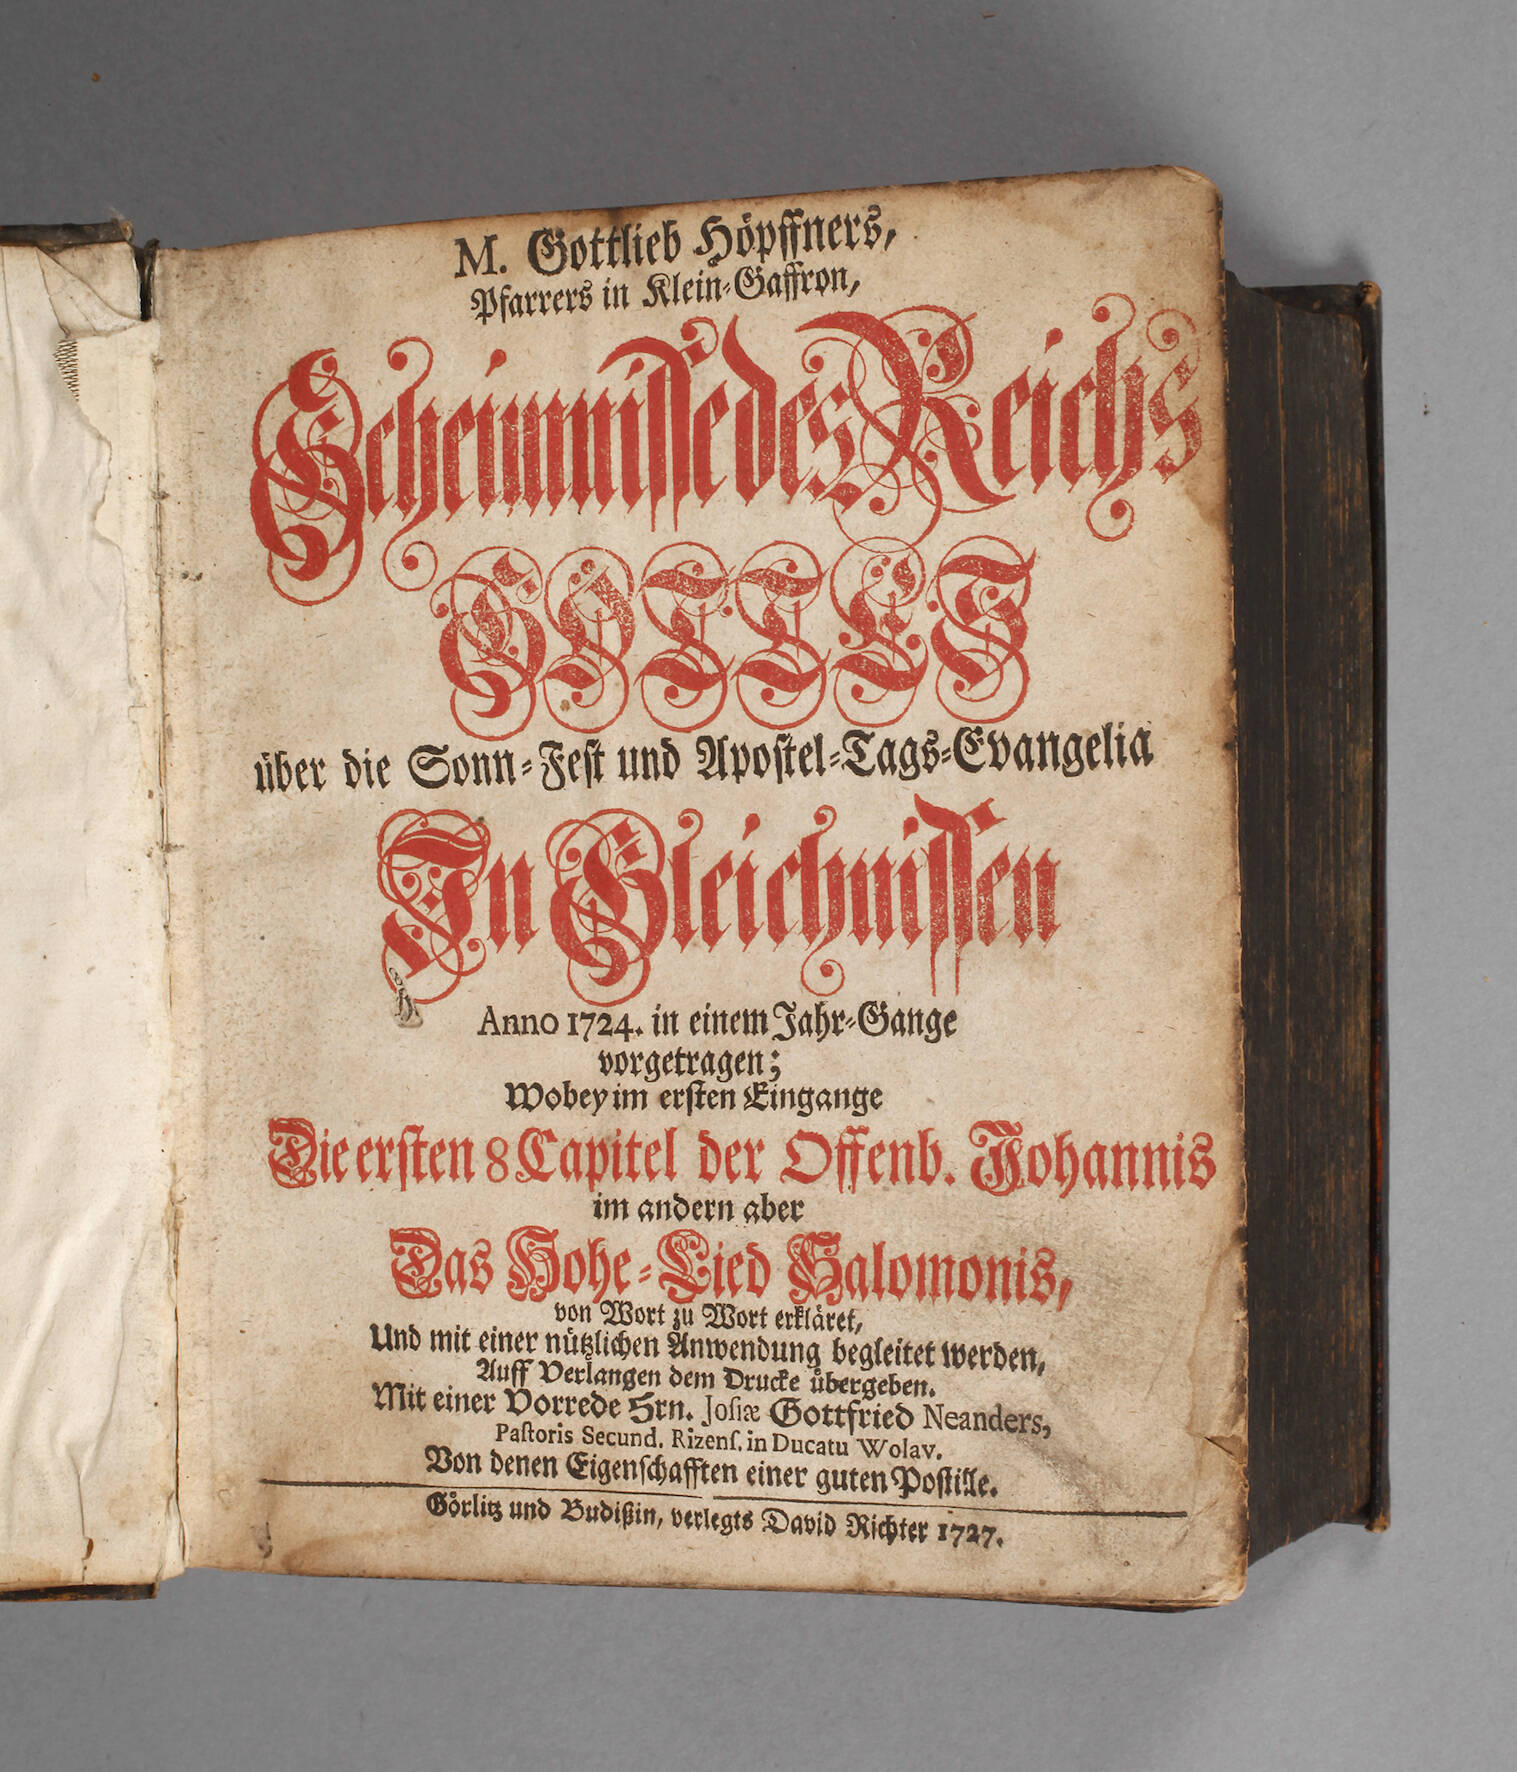 M. Gottlieb Höpffners,
Pfarrers in Klein-Gaffron,
Geheimnisse des Reichs
GOTTES
über die Sonn-Fest und Apostel-Tags-Evangelia
In Gleichnissen
Anno 1724. in einem Jahr-Gange
vorgetragen;
Wobey im ersten Eingange
Die ersten 8 Capitel der Offenb. Johannis
im andern aber
Das Hohe-Lied Salomonis,
von Wort zu Wort erkläret,
Und mit einer nützlichen Anwendung begleitet werden,
Auff Verlangen dem Drucke übergeben.
Mit einer Vorrede Hrn. Josiæ Gottfried Neanders,
Pastoris Secund. Rizens. in Ducatu Wolav.
Von denen Eigenschafften einer guten Postille.
Görlitz und Budißin, verlegts David Richter 1727.